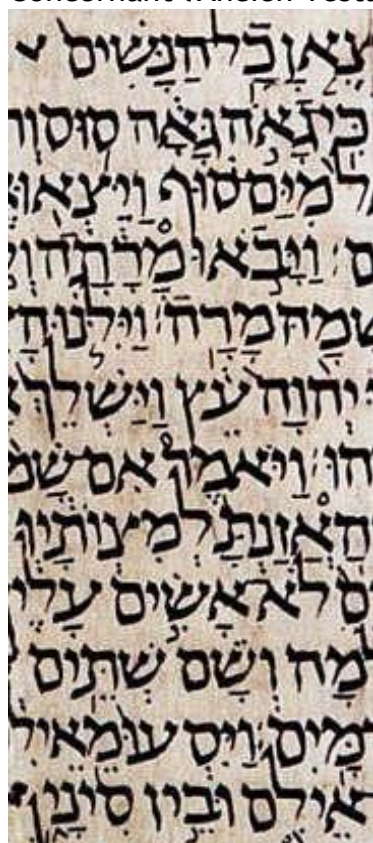 Concernant l'Ancien Testa
צֶאןָ כָל הַנָּשִׁים
כִּי גָאֹה גָּאָה סוּס וְר
ל מִיַּם סוּף וַיֵּצְאוּ
ם׃ וַיָּבֹאוּ מָרָתָה וְל
שְׁמָהּ מָרָה׃ וַיִּלֹּנוּ הָ
יְהוָה עֵץ וַיַּשְׁלֵךְ א
הוּ׃ וַיֹּאמֶר אִם שָׁמ
הַאֲזַנְתָּ לְמִצְוֺתָיו
ם לֹא אָשִׂים עָלֶי
מָה וְשָׁם שְׁתֵּים
מָּיִם׃ וַיִּסְעוּ מֵאֵיל
אֵילִם וּבֵין סִינָי